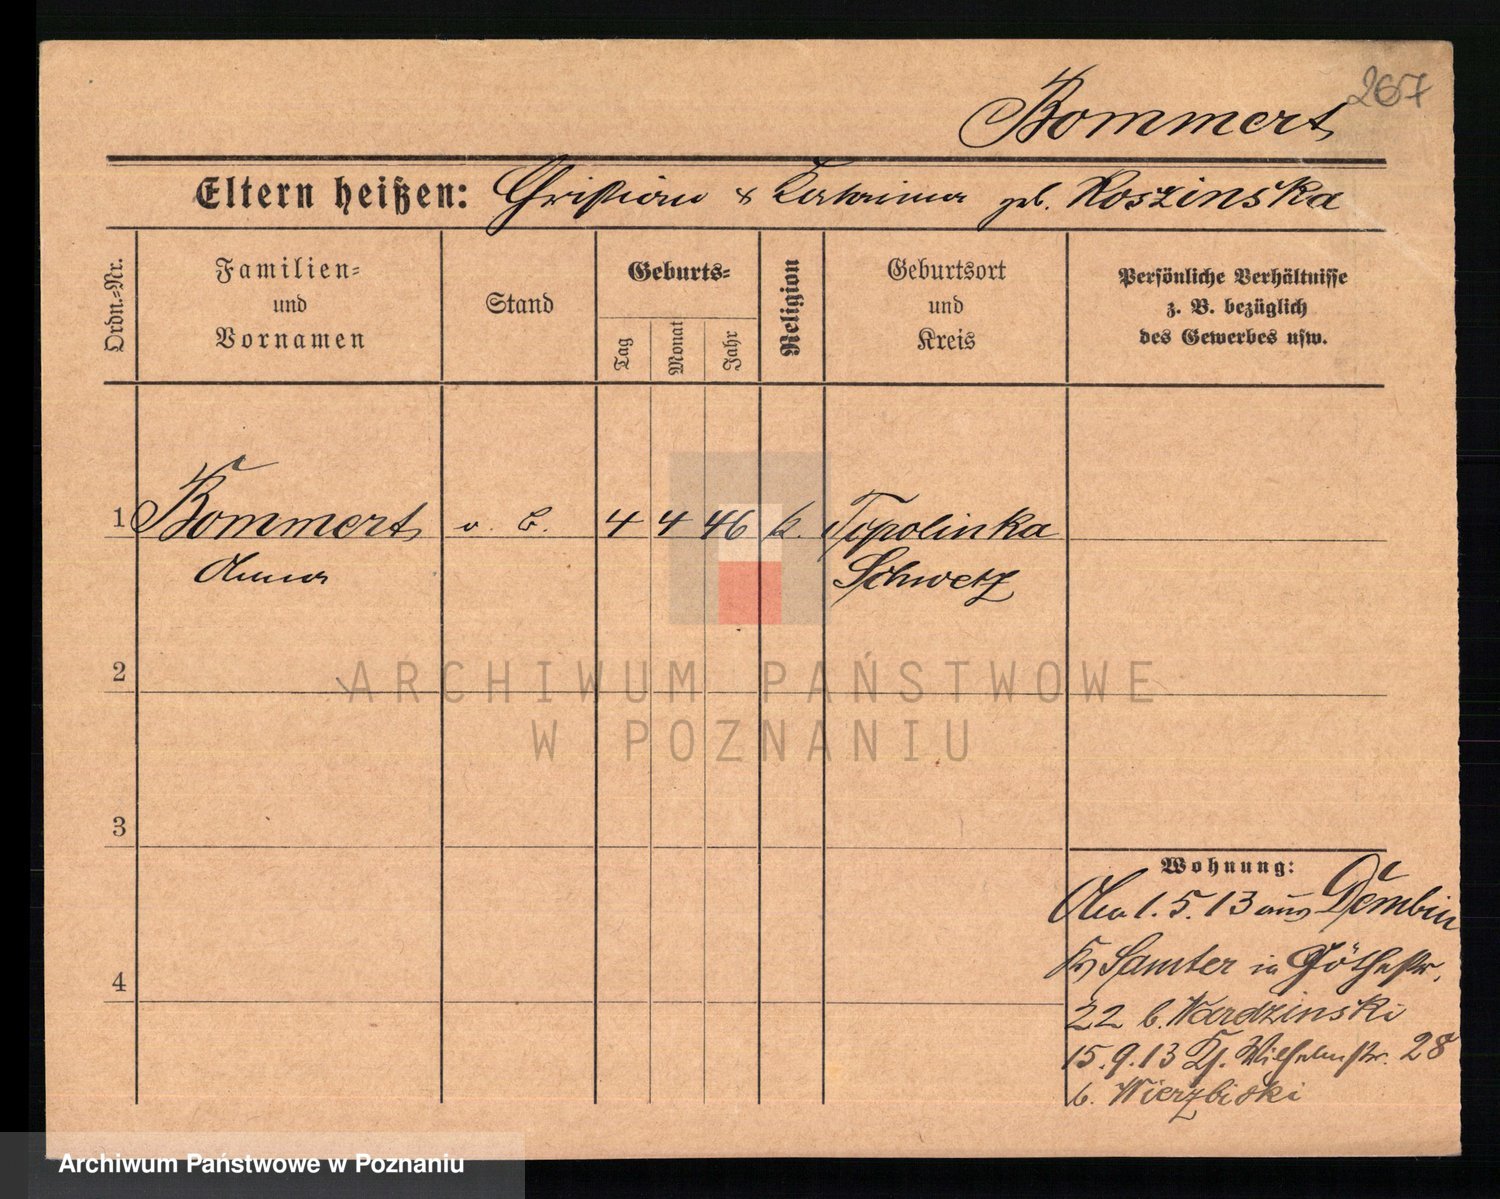 267
Bommert
Eltern heißen: Christian & Katarina geb. Koszinska
Ordn.=Nr.
Familien=
und
Vornamen
Stand
Geburts=
Tag
Monat
Jahr
Religion
Geburtsort
und
Kreis
Persönliche Verhältnisse
z. B. bezüglich
des Gewerbes usw.
1 Bommert o. B. 4 4 46 k. Topolinka
Anna Schwetz
2
ARCHIWUM PAŃSTWOWE
W POZNANIU
3
4
Wohnung:
1.5.13 aus Dembin
Kr Samter in Göthestr.
22 b. Nardzinski
15.9.13 Kl. Wilhelmstr. 28
b. Wierzbiski
Archiwum Państwowe w Poznaniu